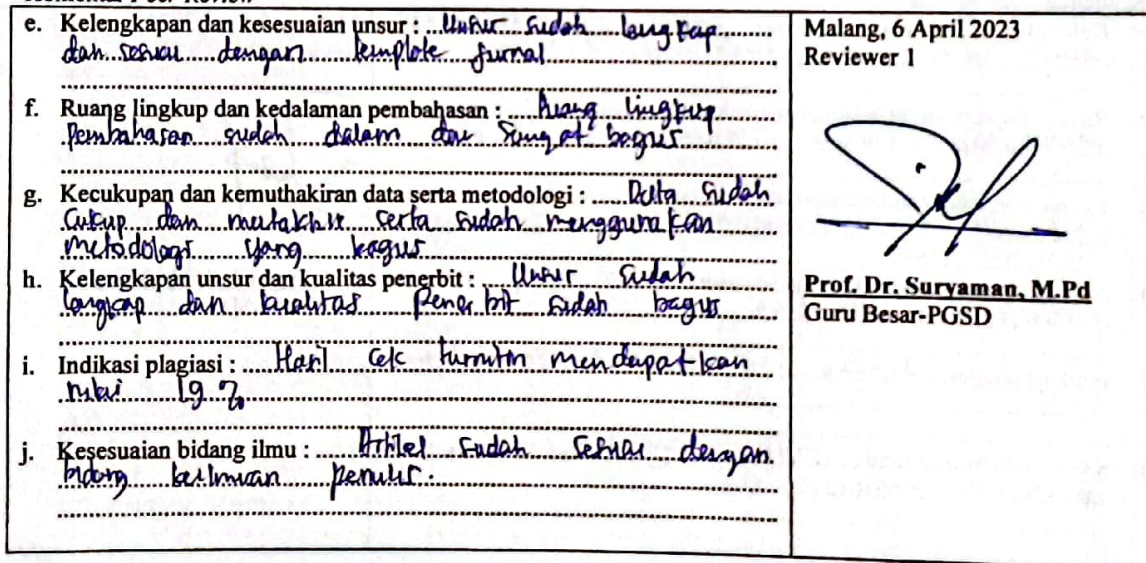 Komentar Peer Review
e. Kelengkapan dan kesesuaian unsur : Unsur sudah lengkap
dan sesuai dengan template jurnal
f. Ruang lingkup dan kedalaman pembahasan : Ruang lingkup
Pembahasan sudah dalam dan sangat bagus
g. Kecukupan dan kemuthakiran data serta metodologi : Data sudah
Cukup dan mutakhir serta sudah menggunakan
metodologi yang bagus
h. Kelengkapan unsur dan kualitas penerbit : Unsur sudah
lengkap dan kualitas Penerbit sudah bagus
i. Indikasi plagiasi : Hasil Cek turnitin mendapatkan
nilai 19 %
j. Kesesuaian bidang ilmu : Artikel sudah sesuai dengan
bidang keilmuan penulis.
Malang, 6 April 2023
Reviewer 1
Prof. Dr. Suryaman, M.Pd
Guru Besar-PGSD